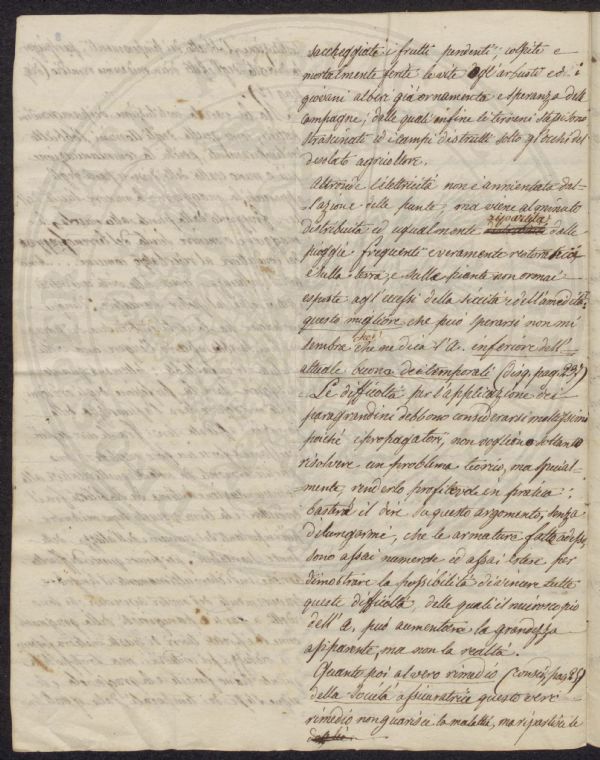 saccheggiati i frutti pendenti, colpite e
mortalmente ferite le viti e gli arbusti ed i
giovani alberi già ornamento e speranza delle
campagne, dalle quali infine i terreni stessi sono
strascinati ed i campi distrutti sotto gl'occhi del
desolato agricoltore.
Altronde l'elettricità non è annientata dal-
l'azione delle punte, ma viene al minuto
distribuita ed ugualmente ripartita dalle
pioggie frequenti e veramente restoratrici
e sulla terra, e sulle piante non ormai
esposte agl'eccessi della siccità e dell'umidità:
questo migliore che può sperarsi non mi
sembra che che ne dica l'A. inferiore dell'
attuale buona dei temporali (disq. pag. 23.)
Le difficoltà per l'applicazione dei
paragrandini debbono considerarsi moltissimo
poiché i propagatori, non vogliono soltanto
risolvere un problema teorico, ma special-
mente, renderlo profittevole in pratica:
basterà il dire su questo argomento, senza
dilungarmi, che le armature fatte adesso,
sono assai numerose ed assai estese per
dimostrare la possibilità di vincere tutte
queste difficoltà, delle quali il microscopio
dell'A. può aumentare la grandezza
apparente, ma non la realtà.
Quanto poi al vero rimedio (consid. pag. 25)
della Società assicuratrice questo vero
rimedio non guarisce la malattia, ma ripartisce le